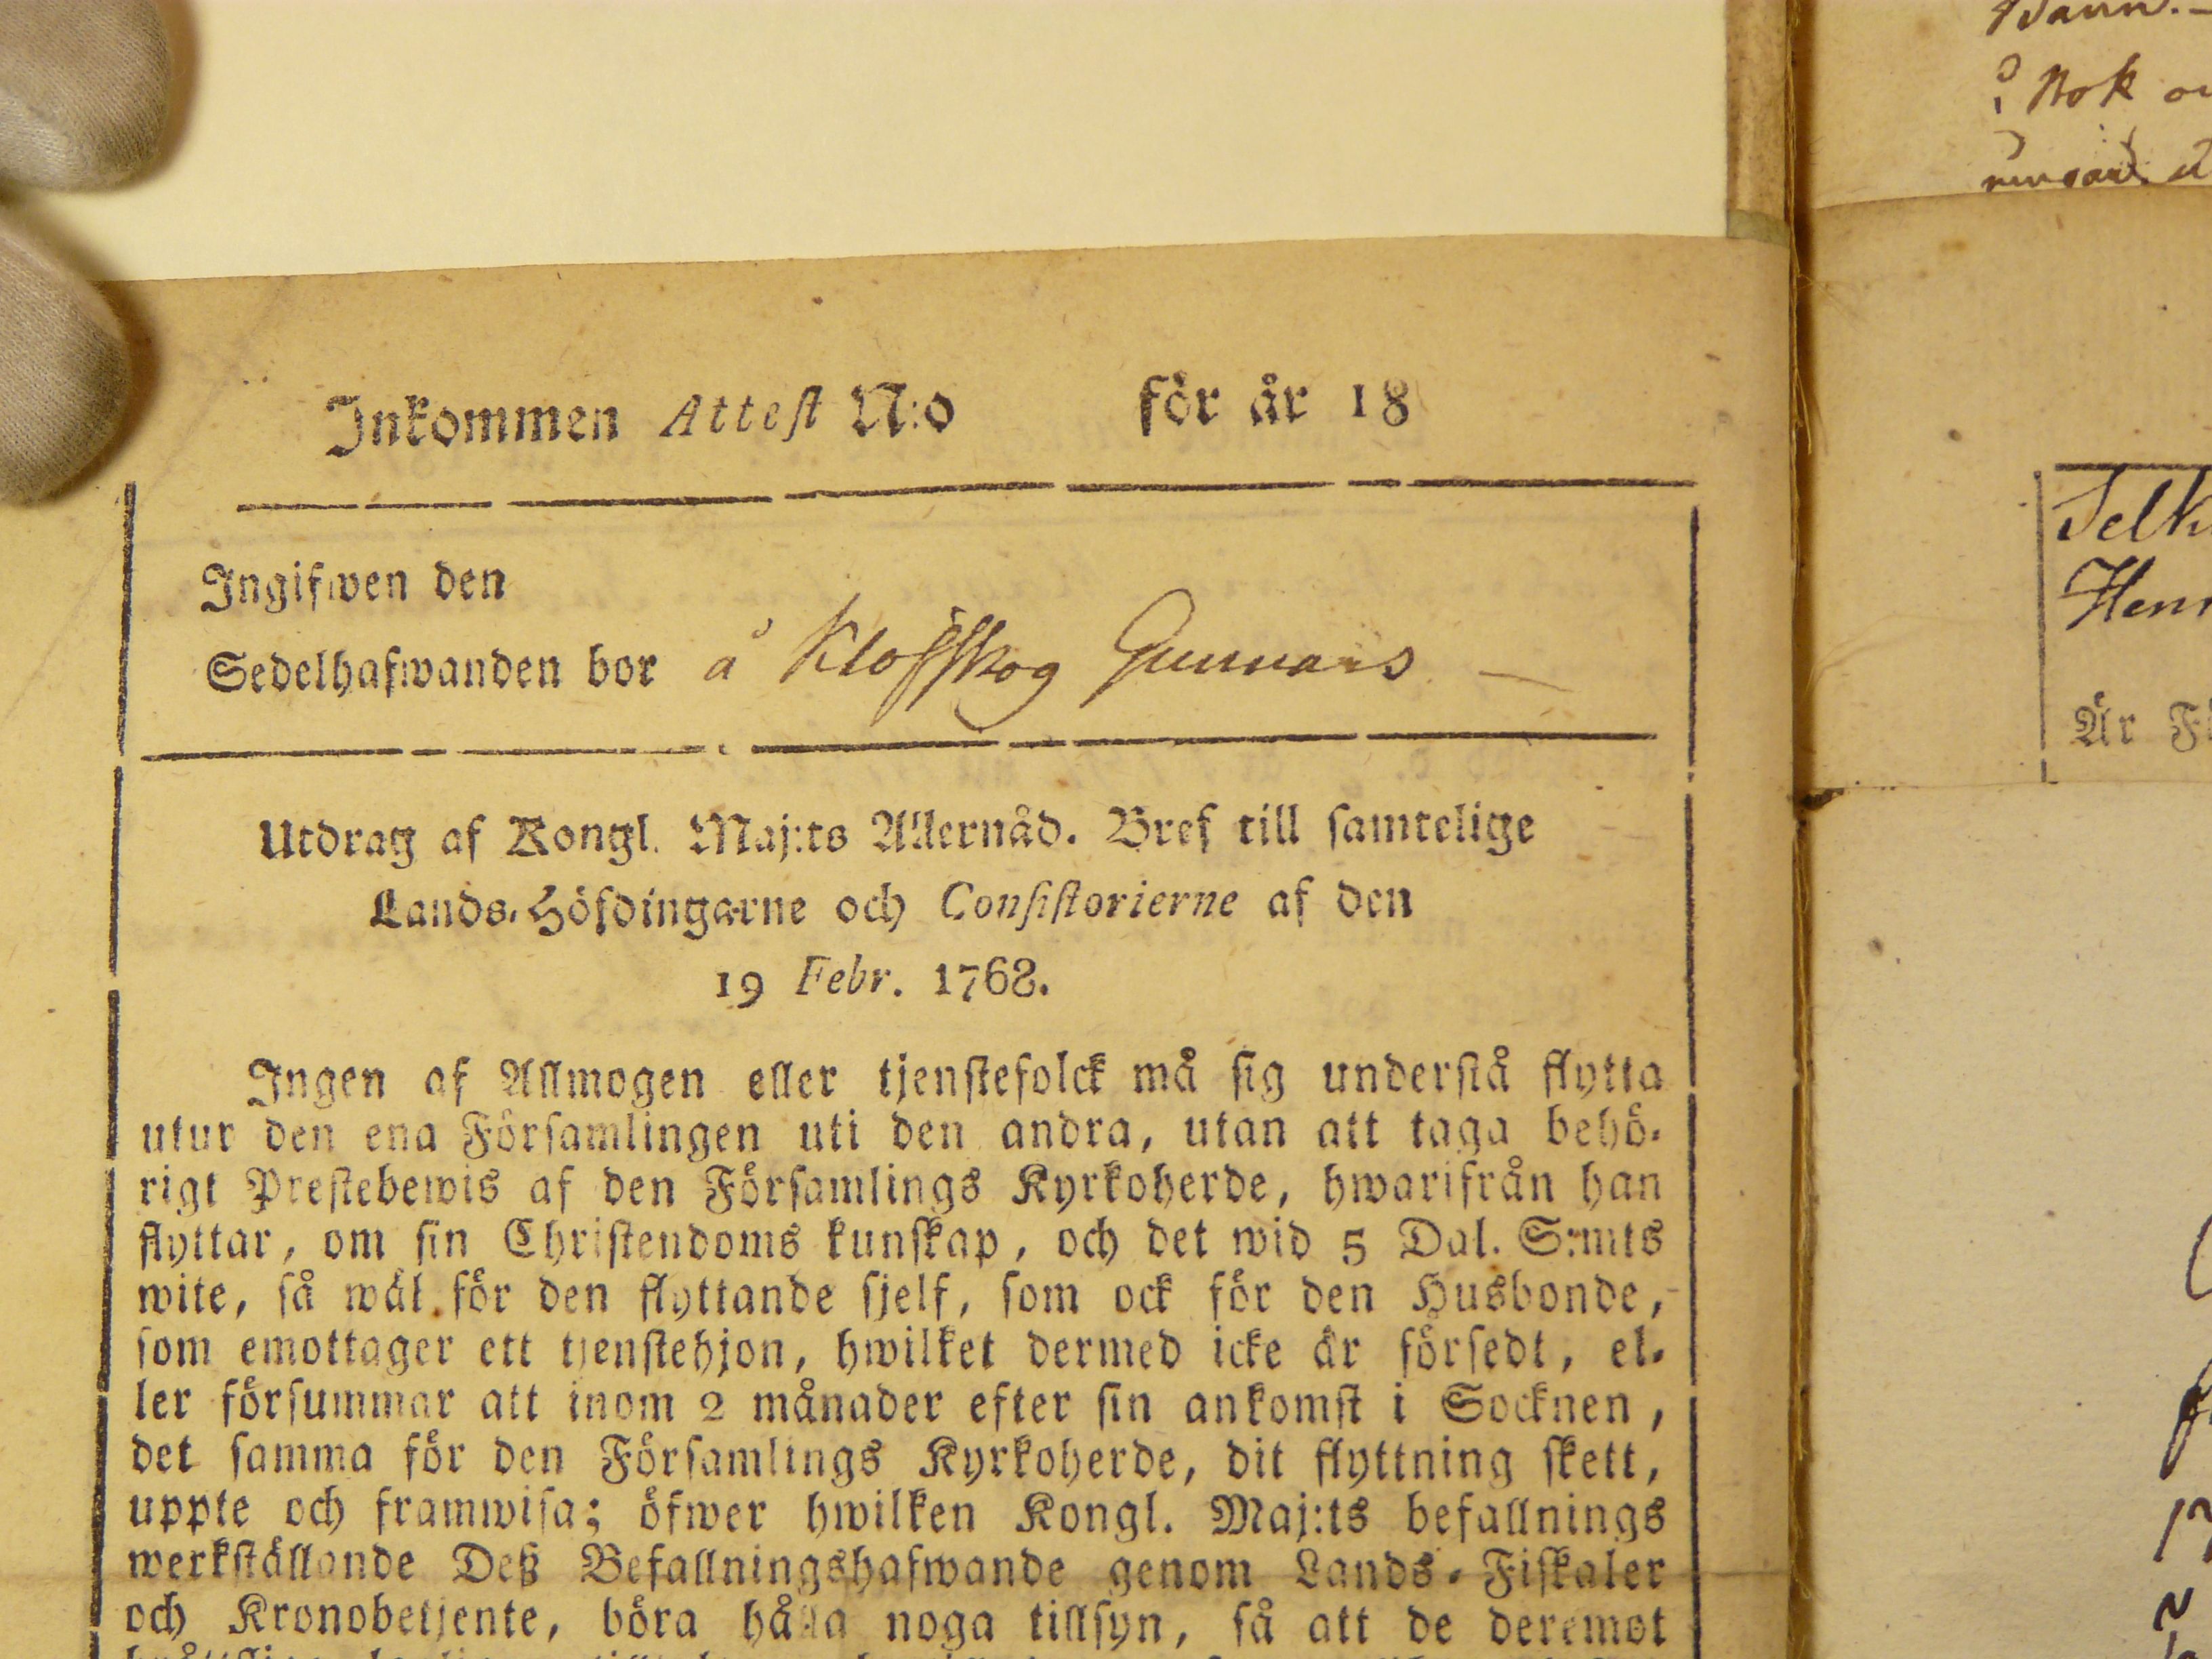 Inkommen Attest N:o för år 18
Ingifwen den
Sedelhafwanden bor å Klofskog Gunnars
Utdrag af Kongl. Maj:ts Allernåd. Bref till samtelige
Lands-Höfdingarne och Consistorierne af den
19 Febr. 1768.
Ingen af Allmogen eller tjenstefolck må sig understå flytta
utur den ena Församlingen uti den andra, utan att taga behö-
rigt Prestebewis af den Församlings Kyrkoherde, hwarifrån han
flyttar, om sin Christendoms kunskap, och det wid 5 Dal. S:mts
wite, så wäl för den flyttande sjelf, som ock för den Husbonde,
som emottager ett tjenstehjon, hwilket dermed icke är försedt, el-
ler försummar att inom 2 månader efter sin ankomst i Socknen,
det samma för den Församlings Kyrkoherde, dit flyttning skett,
uppte och framwisa; öfwer hwilken Kongl. Maj:ts befallnings
werkställande Deß Befallningshafwande genom Lands-Fiskaler
och Kronobetjente, böra hålla noga tillsyn, så att de deremot
Nok
Är